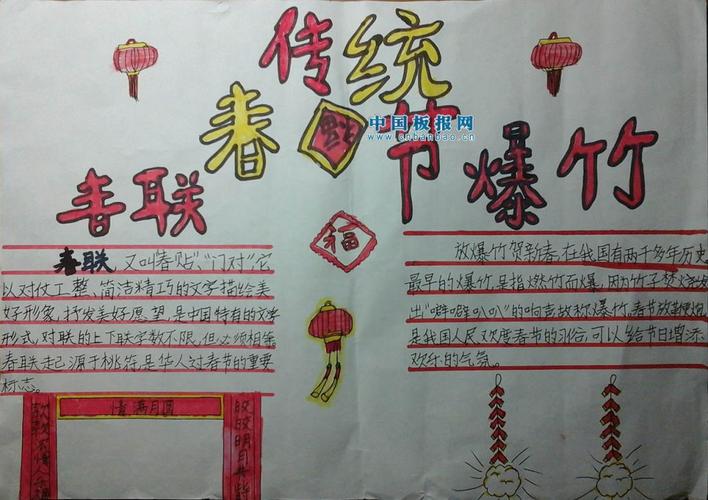 传统
春福节
中国板报网
www.chbanbao.cn
春联
爆竹
福
春联,又叫"春贴"、"门对",它
以对仗工整、简洁精巧的文字描绘美
好形象,抒发美好愿望,是中国特有的文学
形式,对联的上下联字数不限,但必须相等
春联起源于桃符,是华人过春节的重要
标志。
放爆竹贺新春,在我国有两千多年历史
最早的爆竹,是指燃竹而爆,因为竹子焚烧发
出"噼噼叭叭"的响声,故称爆竹。春节放鞭炮
是我国人民欢度春节的习俗,可以给节日增添
欢乐的气氛。
情满月圆
皎皎明月共